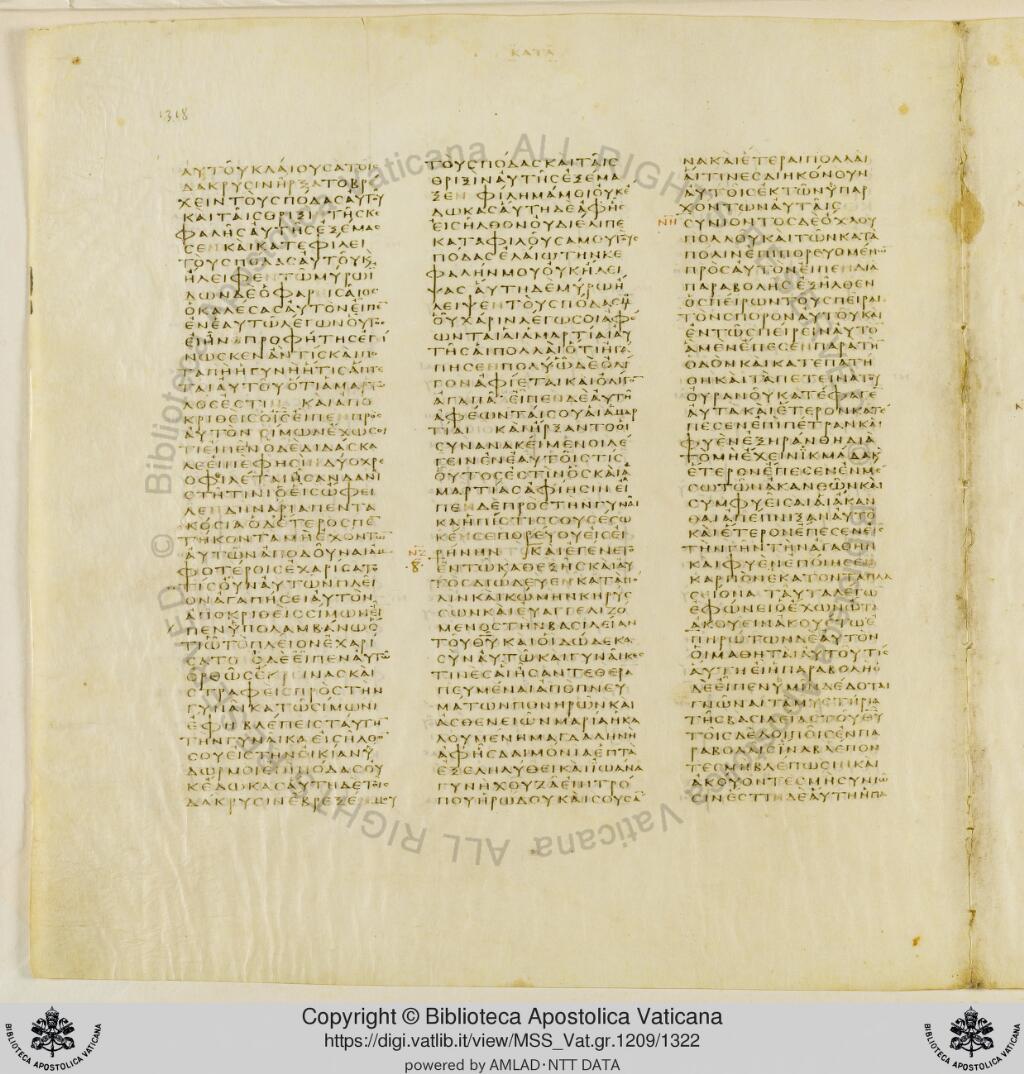 ΚΑΤΑ
1318
ΑΥΤΟΥΚΛΑΙΟΥΣΑΤΟΙΣ
ΔΑΚΡΥΣΙΝΗΡΞΑΤΟΒΡΕ
ΧΕΙΝΤΟΥΣΠΟΔΑΣΑΥΤΟΥ
ΚΑΙΤΑΙΣΘΡΙΞΙ ΤΗΣΚΕ
ΦΑΛΗΣΑΥΤΗΣΕΞΕΜΑΣ
ΣΕΝ ΚΑΙΚΑΤΕΦΙΛΕΙ
ΤΟΥΣΠΟΔΑΣΑΥΤΟΥΚ
ΗΛΕΙΦΕΝΤΩΜΥΡΩΙ
ΔΩΝΔΕΟΦΑΡΙΣΑΙΟΣ
ΟΚΑΛΕΣΑΣΑΥΤΟΝΕΙΠΕ
ΕΝΕΑΥΤΩΛΕΓΩΝΟΥΤΟΣ
ΕΙΗΝ ΠΡΟΦΗΤΗΣΕΓΙ
ΝΩΣΚΕΝΑΝΤΙΣΚΑΙΠΟ
ΤΑΠΗΗΓΥΝΗΗΤΙΣΑΠΤΕ
ΤΑΙΑΥΤΟΥΟΤΙΑΜΑΡΤΩ
ΛΟΣΕΣΤΙΝ ΚΑΙΑΠΟ
ΚΡΙΘΕΙΣΟΙΣΕΙΠΕΝΠΡΟΣ
ΑΥΤΟΝ ΣΙΜΩΝΕΧΩΣΟΙ
ΤΙΕΙΠΕΝΟΔΕΔΙΔΑΣΚΑ
ΛΕΕΙΠΕΦΗΣΙΝΔΥΟΧΡΕ
ΟΦΙΛΕΤΑΙΗΣΑΝΔΑΝΙ
ΣΤΗΤΙΝΙΟΕΙΣΩΦΕΙ
ΛΕΝΔΗΝΑΡΙΑΠΕΝΤΑ
ΚΟΣΙΑΟΔΕΤΕΡΟΣΠΕ
ΤΗΚΟΝΤΑΜΗΕΧΟΝΤΩ
ΑΥΤΩΝΑΠΟΔΟΥΝΑΙΑΜ
ΦΟΤΕΡΟΙΣΕΧΑΡΙΣΑΤΟ
ΤΙΣΟΥΝΑΥΤΩΝΠΛΕΙ
ΟΝΑΓΑΠΗΣΕΙΑΥΤΟΝ
ΑΠΟΚΡΙΘΕΙΣΣΙΜΩΝΕΙ
ΠΕΝΥΠΟΛΑΜΒΑΝΩΟ
ΤΙΩΤΟΠΛΕΙΟΝΕΧΑΡΙ
ΣΑΤΟ ΟΔΕΕΙΠΕΝΑΥΤΩ
ΟΡΘΩΣΕΚΡΙΝΑΣΚΑΙ
ΣΤΡΑΦΕΙΣΠΡΟΣΤΗΝ
ΓΥΝΑΙΚΑΤΩΣΙΜΩΝΙ
ΕΦΗΒΛΕΠΕΙΣΤΑΥΤΗ
ΤΗΝΓΥΝΑΙΚΑΕΙΣΗΛΘΟ
ΣΟΥΕΙΣΤΗΝΟΙΚΙΑΝΥ
ΔΩΡΜΟΙΕΠΙΠΟΔΑΣΟΥ
ΚΕΔΩΚΑΣΑΥΤΗΔΕΤΟΙΣ
ΔΑΚΡΥΣΙΝΕΒΡΕΞΕΜΟΥ
ΤΟΥΣΠΟΔΑΣΚΑΙΤΑΙΣ
ΘΡΙΞΙΝΑΥΤΗΣΕΞΕΜΑ
ΞΕΝ ΦΙΛΗΜΑΜΟΙΟΥΚΕ
ΔΩΚΑΣΑΥΤΗΔΕΑΦΗΣ
ΕΙΣΗΛΘΟΝΟΥΔΙΕΛΙΠΕ
ΚΑΤΑΦΙΛΟΥΣΑΜΟΥΤΟΥΣ
ΠΟΔΑΣΕΛΑΙΩΤΗΝΚΕ
ΦΑΛΗΝΜΟΥΟΥΚΗΛΕΙ
ΨΑΣ ΑΥΤΗΔΕΜΥΡΩΗ
ΛΕΙΨΕΝΤΟΥΣΠΟΔΑΣΜ
ΟΥΧΑΡΙΝΛΕΓΩΣΟΙΑΦΕ
ΩΝΤΑΙΑΙΑΜΑΡΤΙΑΙΑΥ
ΤΗΣΑΙΠΟΛΛΑΙΟΤΙΗΓΑ
ΠΗΣΕΝΠΟΛΥΩΔΕΟΛΙ
ΓΟΝΑΦΙΕΤΑΙΚΑΙΟΛΙΓΟ
ΑΓΑΠΑ ΕΙΠΕΝΔΕΑΥΤΗ
ΑΦΕΩΝΤΑΙΣΟΥΑΙΑΜΑΡ
ΤΙΑΙ ΚΑΙΗΡΞΑΝΤΟΟΙ
ΣΥΝΑΝΑΚΕΙΜΕΝΟΙΛΕ
ΓΕΙΝΕΝΕΑΥΤΟΙΣΤΙΣ
ΟΥΤΟΣΕΣΤΙΝΟΣΚΑΙΑ
ΜΑΡΤΙΑΣΑΦΙΗΣΙΝΕΙ
ΠΕΝΔΕΠΡΟΣΤΗΝΓΥΝΑΙ
ΚΑΗΠΙΣΤΙΣΣΟΥΣΕΣΩ
ΚΕΝΣΕΠΟΡΕΥΟΥΕΙΣΕΙ
ΝΖ ΡΗΝΗΝ ΚΑΙΕΓΕΝΕΤΟ
Η ΕΝΤΩΚΑΘΕΞΗΣΚΑΙΑΥ
ΤΟΣΔΙΩΔΕΥΕΝΚΑΤΑΠΟ
ΛΙΝΚΑΙΚΩΜΗΝΚΗΡΥΣ
ΣΩΝΚΑΙΕΥΑΓΓΕΛΙΖΟ
ΜΕΝΟΣΤΗΝΒΑΣΙΛΕΙΑΝ
ΤΟΥΘΥΚΑΙΟΙΔΩΔΕΚΑ
ΣΥΝΑΥΤΩΚΑΙΓΥΝΑΙΚΕΣ
ΤΙΝΕΣΑΙΗΣΑΝΤΕΘΕΡΑ
ΠΕΥΜΕΝΑΙΑΠΟΠΝΕΥ
ΜΑΤΩΝΠΟΝΗΡΩΝΚΑΙ
ΑΣΘΕΝΕΙΩΝΜΑΡΙΑΗΚΑ
ΛΟΥΜΕΝΗΜΑΓΔΑΛΗΝΗ
ΑΦΗΣΔΑΙΜΟΝΙΑΕΠΤΑ
ΕΞΕΛΗΛΥΘΕΙΚΑΙΙΩΑΝΑ
ΓΥΝΗΧΟΥΖΑΕΠΙΤΡΟ
ΠΟΥΗΡΩΔΟΥΚΑΙΣΟΥΣΑ
ΝΑΚΑΙΕΤΕΡΑΙΠΟΛΛΑΙ
ΑΙΤΙΝΕΣΔΙΗΚΟΝΟΥΝ
ΑΥΤΟΙΣΕΚΤΩΝΥΠΑΡ
ΧΟΝΤΩΝΑΥΤΑΙΣ
ΝΗ ΣΥΝΙΟΝΤΟΣΔΕΟΧΛΟΥ
ΠΟΛΛΟΥΚΑΙΤΩΝΚΑΤΑ
ΠΟΛΙΝΕΠΙΠΟΡΕΥΟΜΕΝΩ
ΠΡΟΣΑΥΤΟΝΕΙΠΕΝΔΙΑ
ΠΑΡΑΒΟΛΗΣΕΞΗΛΘΕΝ
ΟΣΠΕΙΡΩΝΤΟΥΣΠΕΙΡΑΙ
ΤΟΝΣΠΟΡΟΝΑΥΤΟΥΚΑΙ
ΕΝΤΩΣΠΕΙΡΕΙΝΑΥΤΟ
ΑΜΕΝΕΠΕΣΕΝΠΑΡΑΤΗ
ΟΔΟΝΚΑΙΚΑΤΕΠΑΤΗ
ΘΗΚΑΙΤΑΠΕΤΕΙΝΑΤΟΥ
ΟΥΡΑΝΟΥΚΑΤΕΦΑΓΕ
ΑΥΤΑΚΑΙΕΤΕΡΟΝΚΑΤΕ
ΠΕΣΕΝΕΠΙΠΕΤΡΑΝΚΑΙ
ΦΥΕΝΕΞΗΡΑΝΘΗΔΙΑ
ΤΟΜΗΕΧΕΙΝΙΚΜΑΔΑΚΑΙ
ΕΤΕΡΟΝΕΠΕΣΕΝΕΝΜΕ
ΣΩΤΩΝΑΚΑΝΘΩΝΚΑΙ
ΣΥΜΦΥΕΙΣΑΙΑΙΑΚΑΝ
ΘΑΙΑΠΕΠΝΙΞΑΝΑΥΤΟ
ΚΑΙΕΤΕΡΟΝΕΠΕΣΕΝΕΙΣ
ΤΗΝΓΗΝΤΗΝΑΓΑΘΗΝ
ΚΑΙΦΥΕΝΕΠΟΙΗΣΕΝ
ΚΑΡΠΟΝΕΚΑΤΟΝΤΑΠΛΑ
ΣΕΙΟΝΑ ΤΑΥΤΑΛΕΓΩ
ΕΦΩΝΕΙΟΕΧΩΝΩΤΑ
ΑΚΟΥΕΙΝΑΚΟΥΕΤΩΕ
ΠΗΡΩΤΩΝΔΕΑΥΤΟΝ
ΟΙΜΑΘΗΤΑΙΑΥΤΟΥΤΙΣ
ΑΥΤΗΕΙΗΠΑΡΑΒΟΛΗΟ
ΔΕΕΙΠΕΝΥΜΙΝΔΕΔΟΤΑΙ
ΓΝΩΝΑΙΤΑΜΥΣΤΗΡΙΑ
ΤΗΣΒΑΣΙΛΕΙΑΣΤΟΥΘΥ
ΤΟΙΣΔΕΛΟΙΠΟΙΣΕΝΠΑ
ΡΑΒΟΛΑΙΣΙΝΑΒΛΕΠΟΝ
ΤΕΣΜΗΒΛΕΠΩΣΙΝΚΑΙ
ΑΚΟΥΟΝΤΕΣΜΗΣΥΝΙΩ
ΣΙΝΕΣΤΙΝΔΕΑΥΤΗΗΠΑ
© Biblioteca Apostolica Vaticana ALL RIGHTS RESERVED
Copyright © Biblioteca Apostolica Vaticana
https://digi.vatlib.it/view/MSS_Vat.gr.1209/1322
powered by AMLAD·NTT DATA
BIBLIOTECA APOSTOLICA VATICANA
BIBLIOTECA APOSTOLICA VATICANA